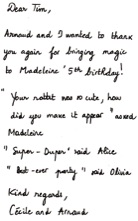 Dear Tim,
Arnaud and I wanted to thank
you again for bringing magic
to Madeleine' 5th birthday!
" Your rabbit was so cute, how
did you make it appear" asked
Madeleine
" Super-Duper" said Alice
" Best-ever party " said Olivia
Kind regards,
Cécile and Arnaud